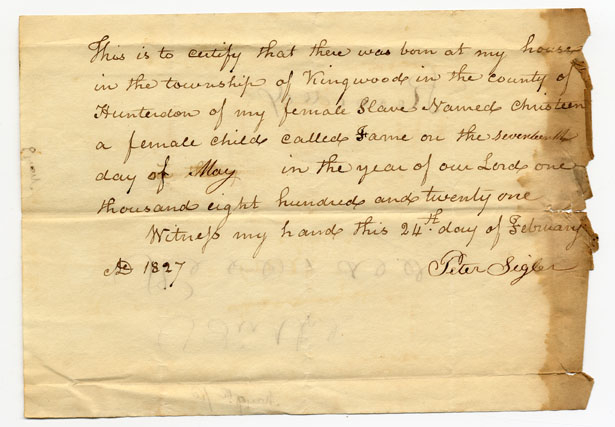 This is to certify that there was born at my house
in the township of Kingwood in the county of
Hunterdon of my female Slave Named Christeen
a female child called Fame on the seventeenth
day of May in the year of our Lord one
thousand eight hundred and twenty one
Witness my hand this 24th day of February
AD 1827 Peter Sigler